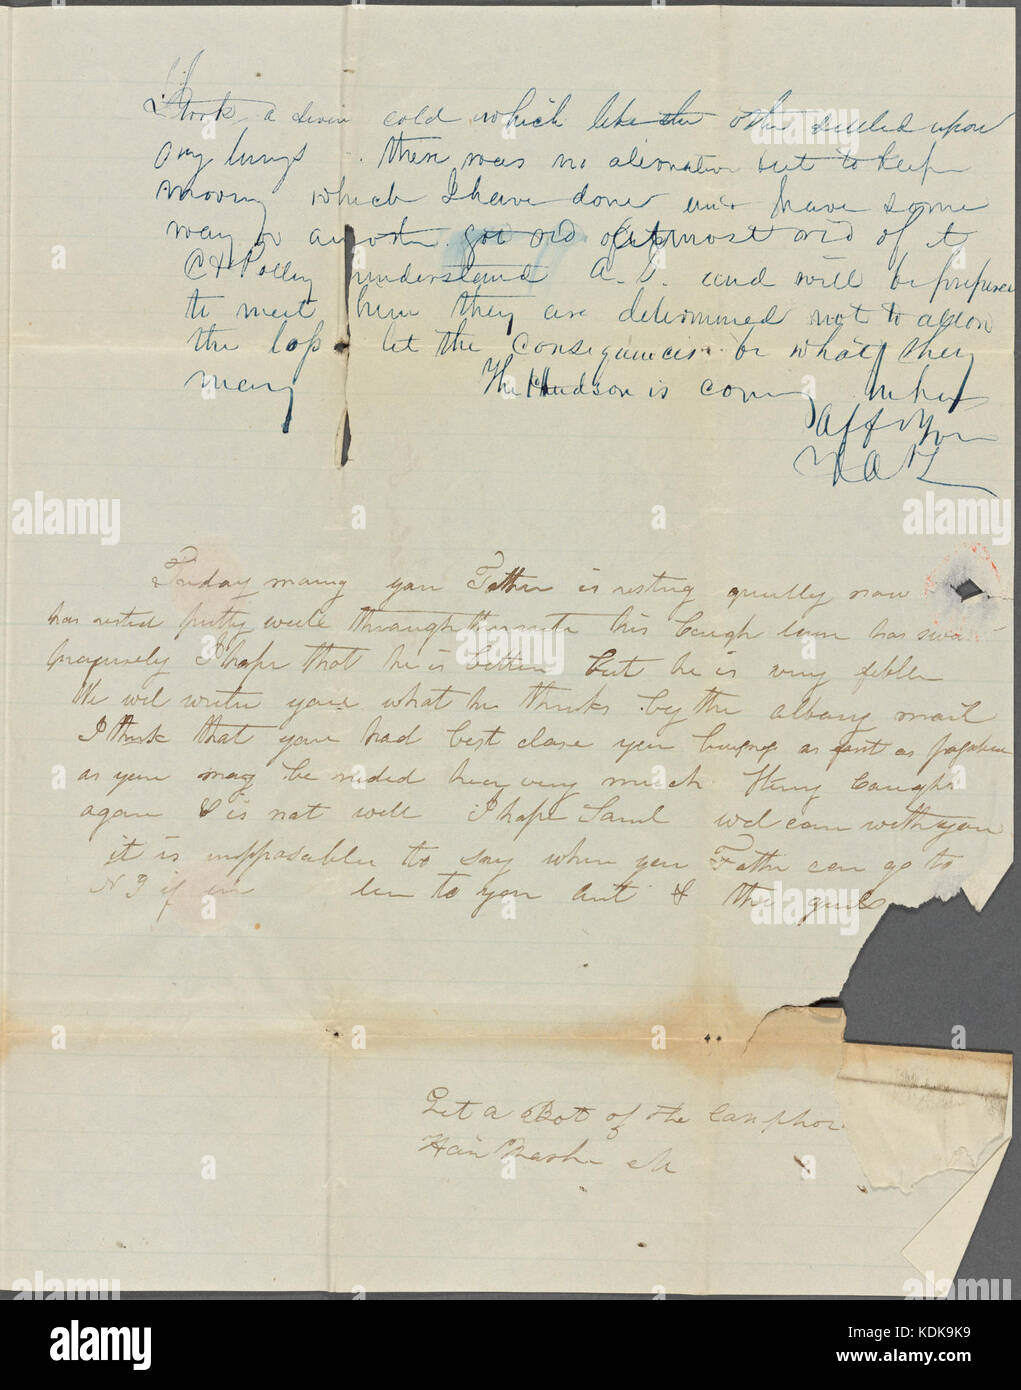 I took a sevier cold which like the other settled upon
my lungs. there was no alternative but to keep
moving which I have done and have some
way or another got rid of almost rid of it
C & Polley understand A. C. and will be prepared
to meet him they are determined not to
the loss let the Consequences be what they
may The Hudson is coming
Aff Yours
Friday morning your Father is resting quietly now
has rested pretty well through the night his Cough has
I hope that he is better but he is very feble
We wil write you what he thinks by the albany mail
I think that you had best close you as fast as
as you may be needed here very much Henry Coughs
again & is not well I hope Saml wil com with you
it is impossable to say when you Father can go to
N Y if to you Aunt & the girls
Get a Bot of the Camphor
Hair Washe
alamy
www.alamy.com
Image ID: KDK9K9